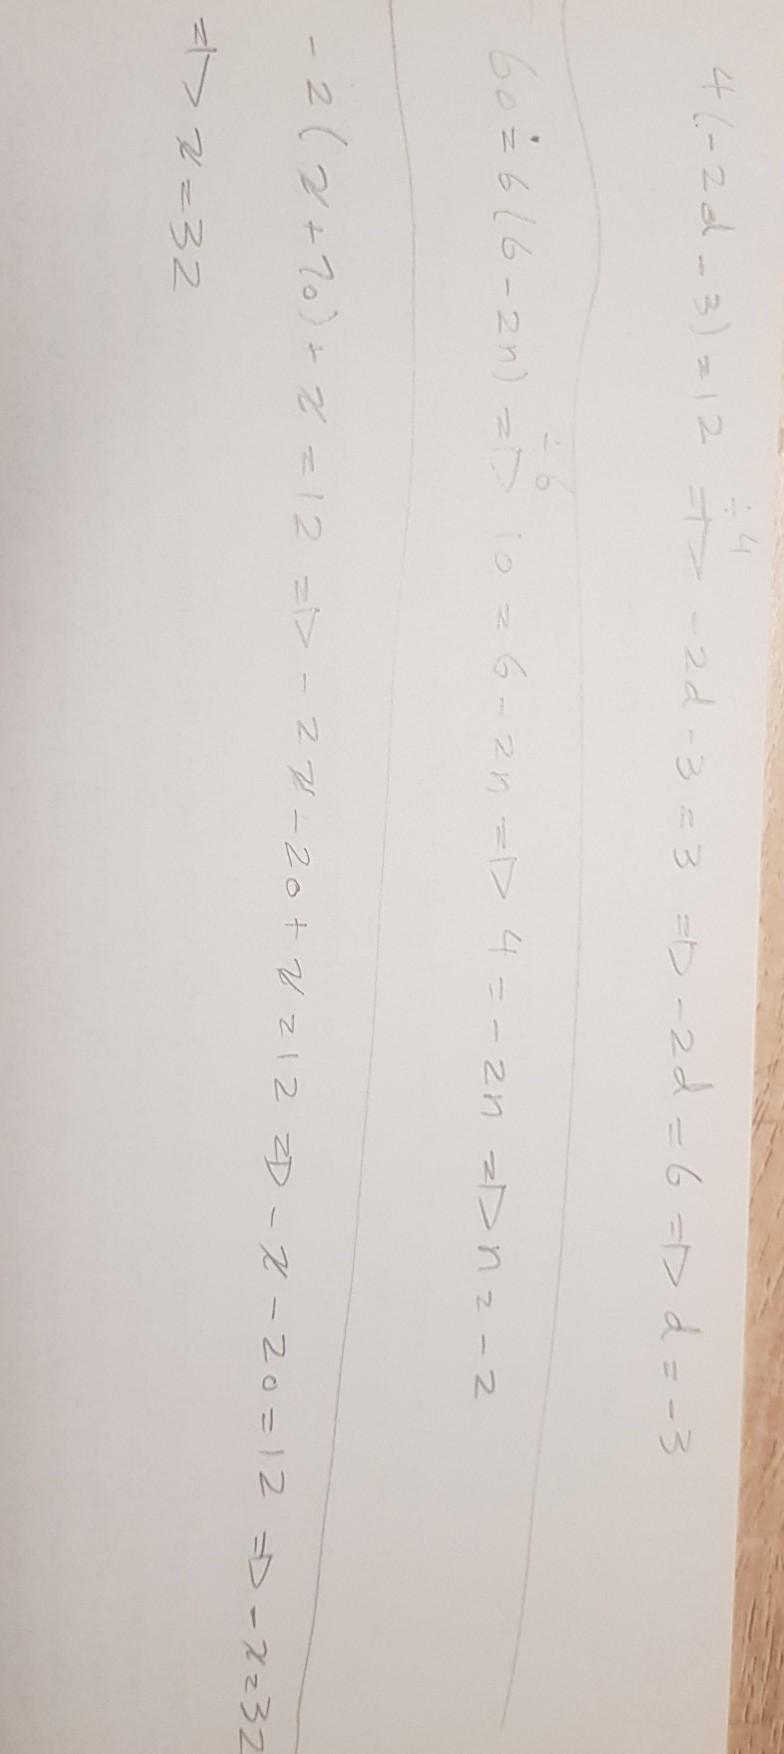 4(-2d-3)=12 ⇒ ÷4 -2d-3=3 ⇒ -2d=6 ⇒ d=-3
60=6(6-2n) ⇒ ÷6 10=6-2n ⇒ 4=-2n ⇒ n=-2
-2(x+10)+x=12 ⇒ -2x-20+x=12 ⇒ -x-20=12 ⇒ -x=32
⇒ x=32